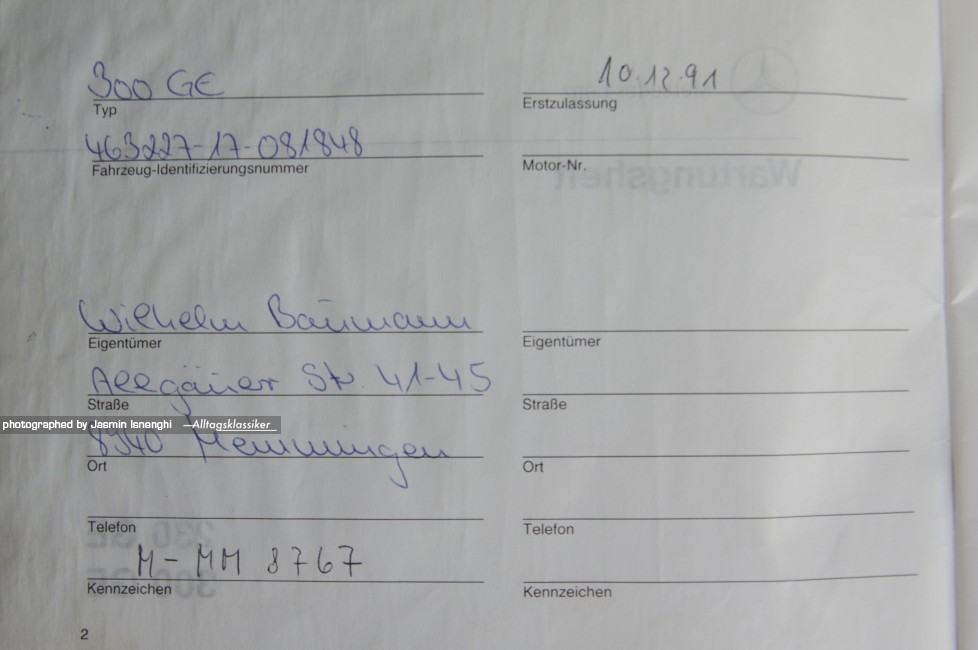 300 GE
Typ
10.12.91
Erstzulassung
463227-17-081848
Fahrzeug-Identifizierungsnummer
Motor-Nr.
Wartungsheft
Wilhelm Baumann
Eigentümer
Eigentümer
Allgäuer Str. 41-45
Straße
Straße
photographed by Jasmin Isnenghi —Alltagsklassiker
8940 Memmingen
Ort
Ort
Telefon
Telefon
230 GE
M-MM 8767
Kennzeichen
300 GE
Kennzeichen
2